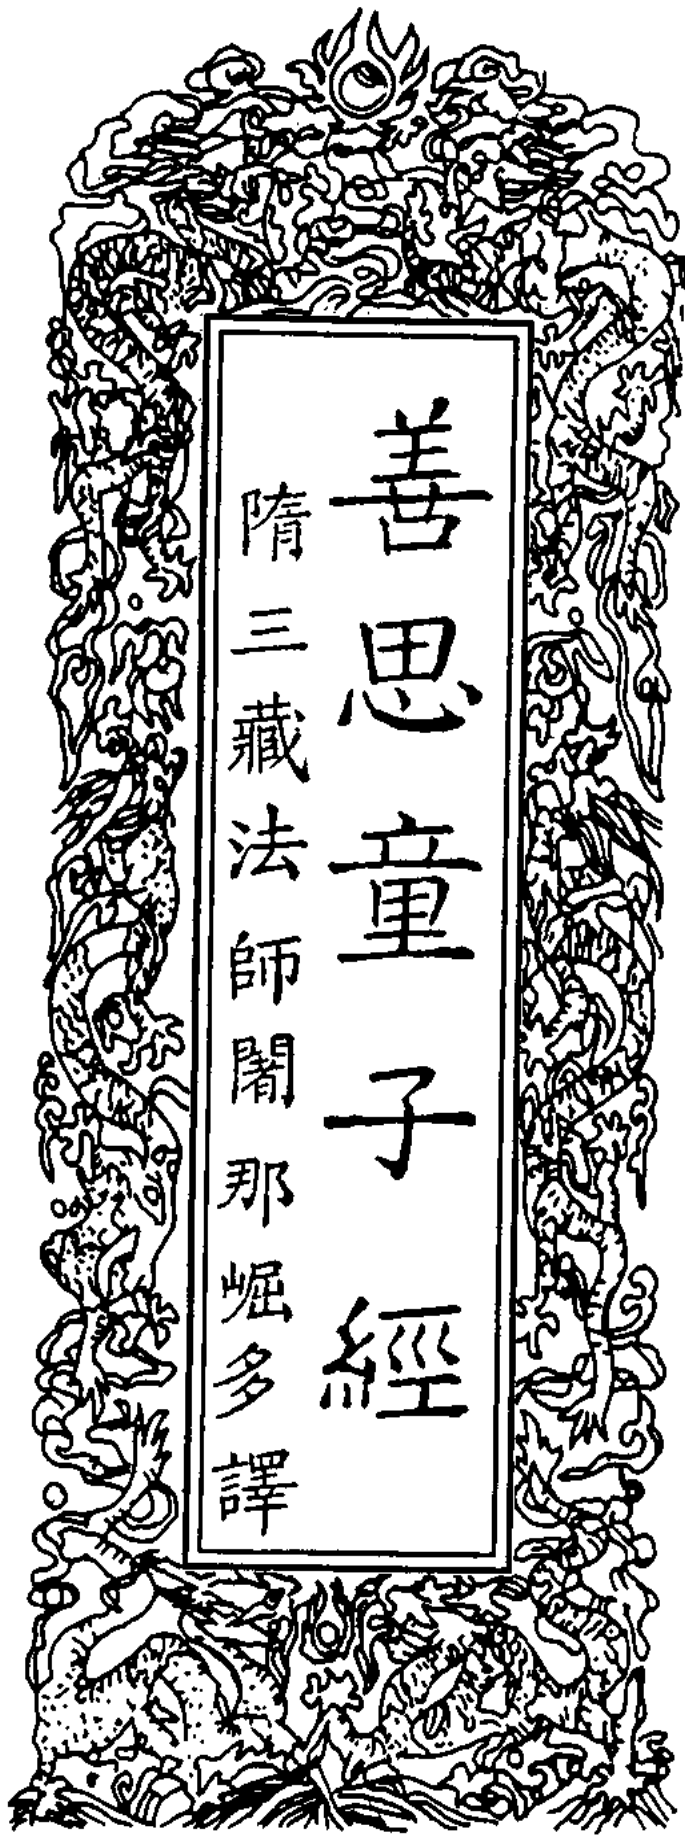 善思童子經
隋三藏法師闍那崛多譯